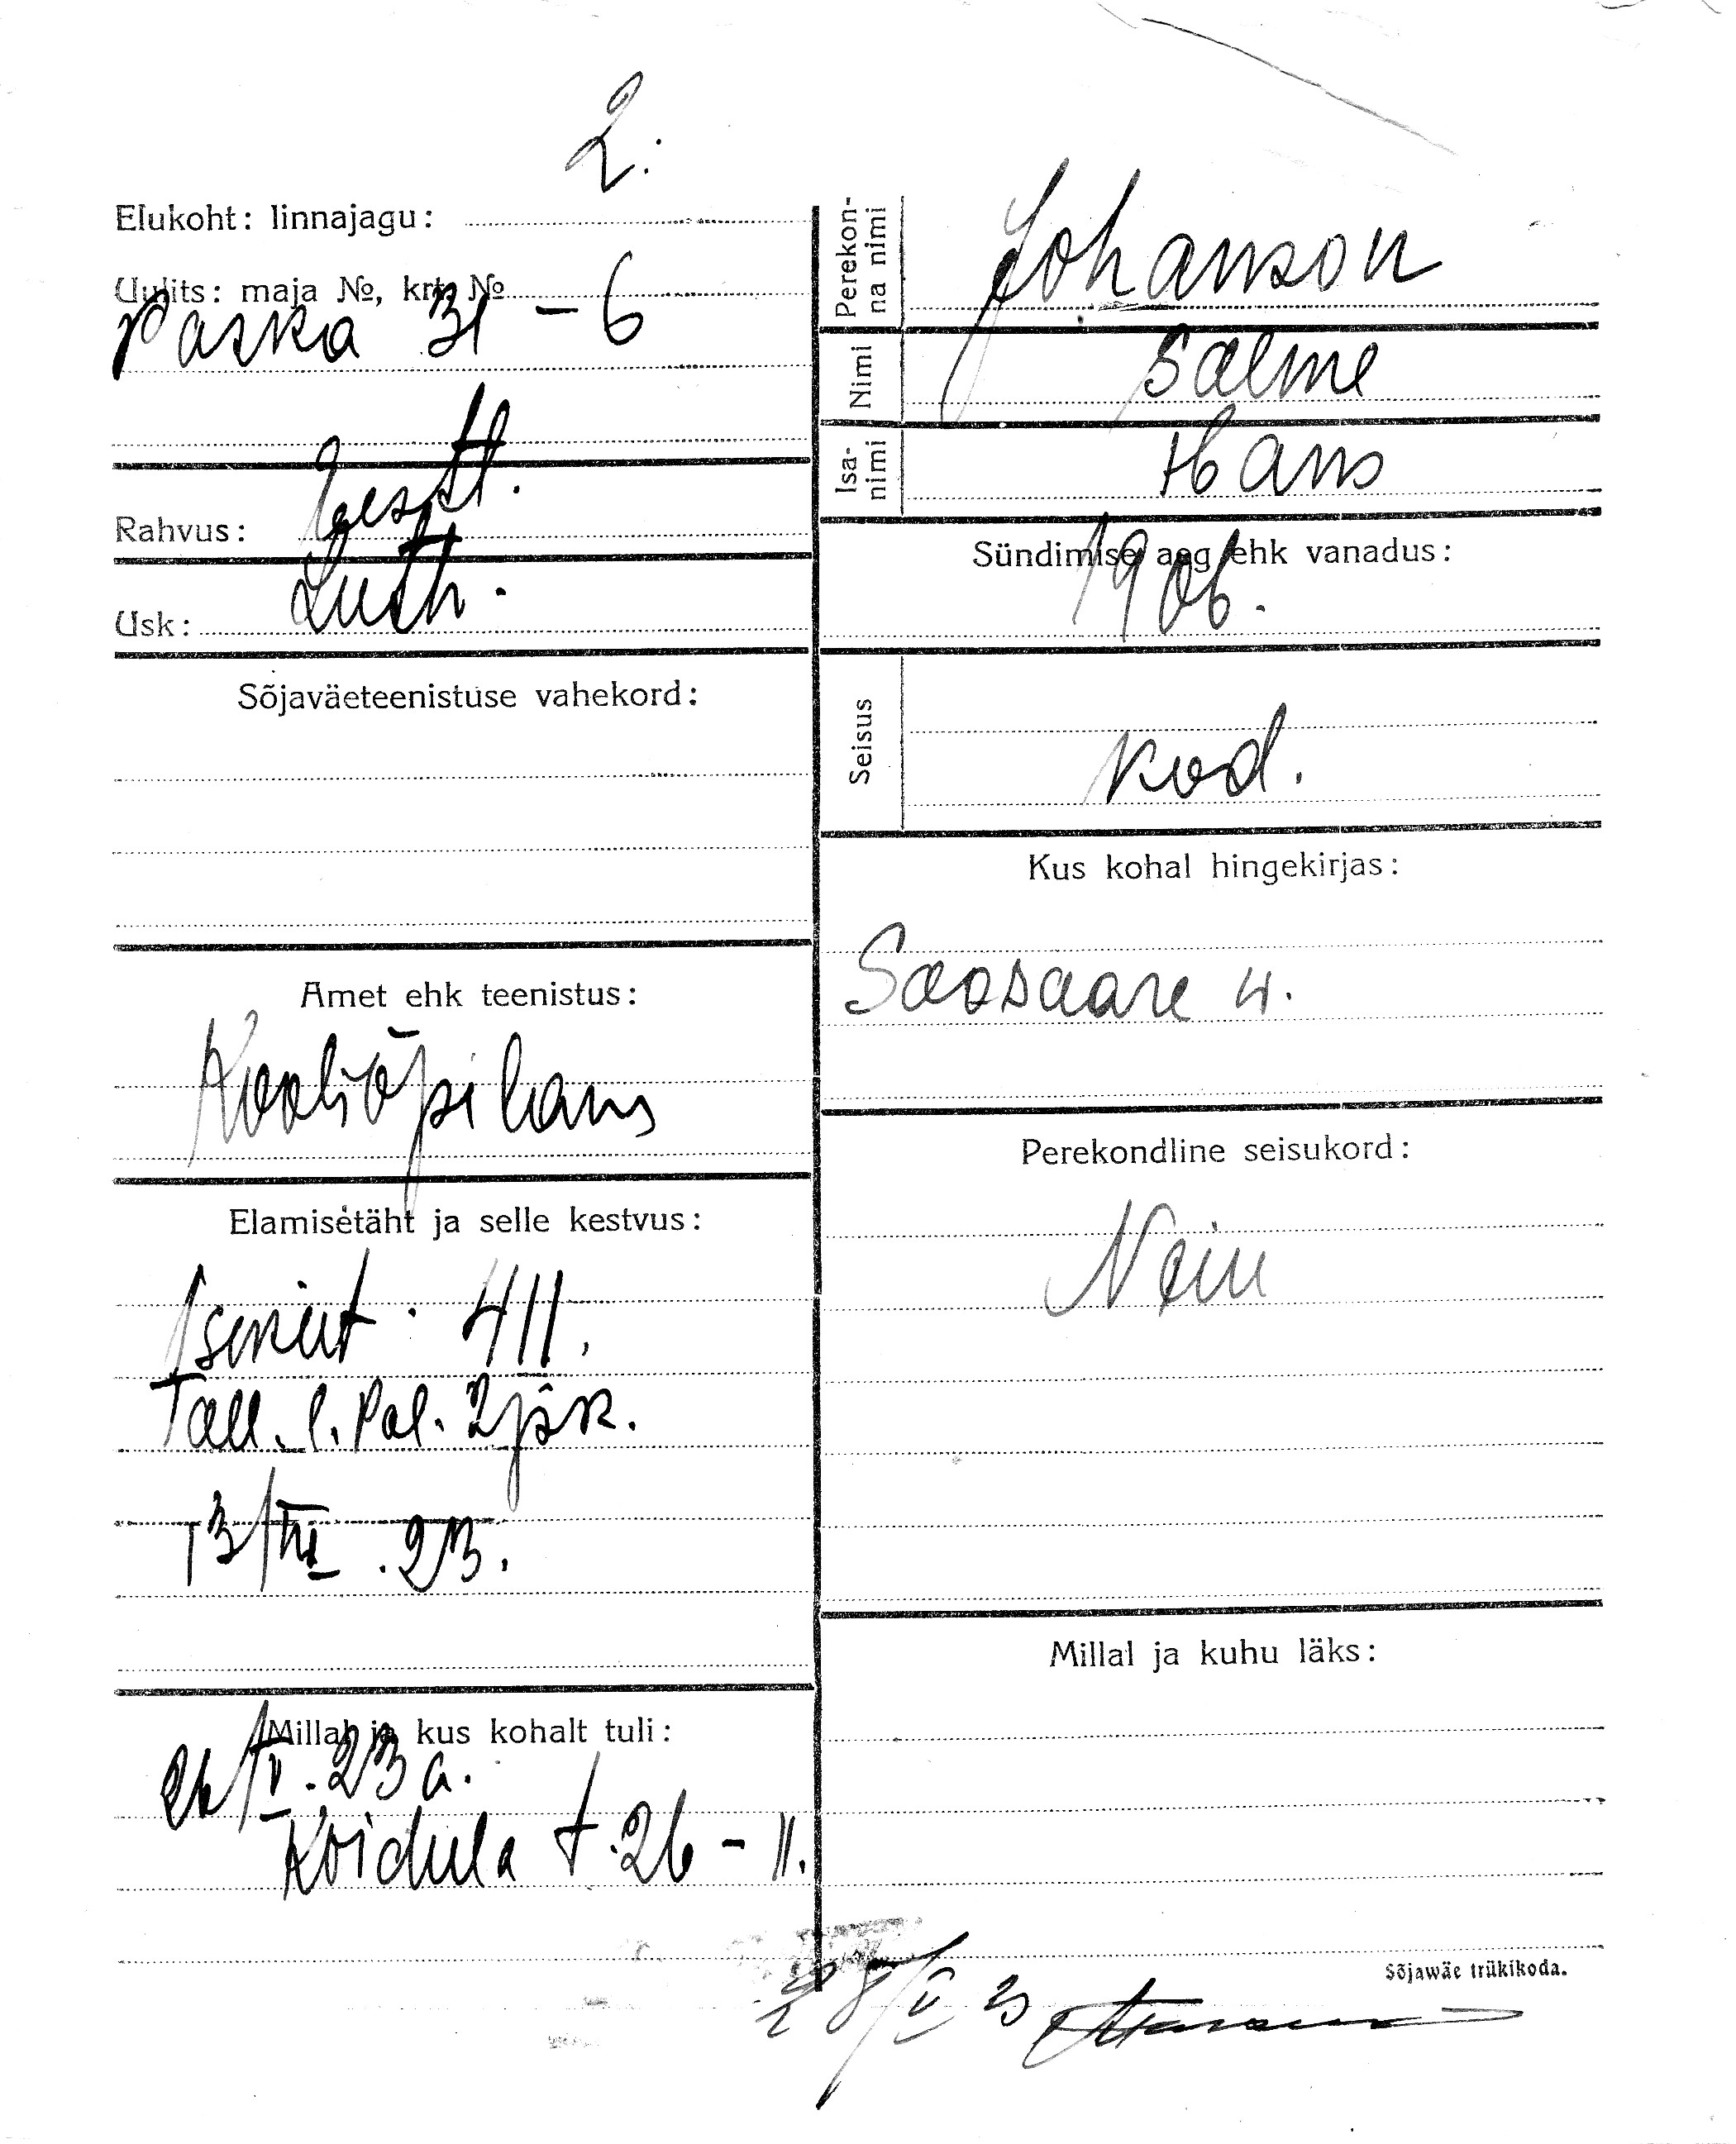 2.
Elukoht: linnajagu:
Uulits: maja №, krt. №
Paska 31 - 6
Rahvus: Eestl.
Usk: Luth.
Sõjaväeteenistuse vahekord:
Amet ehk teenistus:
Kooliõpilane
Elamisetäht ja selle kestvus:
Isikut. 411.
Tall. l. Pol. 2 jsk.
13/III .23.
Millal ja kus kohalt tuli:
26/V. 23 a.
Koidula t. 26 - 11.
Perekonna nimi
Johanson
Nimi
Salme
Isanimi
Hans
Sündimise aeg ehk vanadus:
1906.
Seisus
kod.
Kus kohal hingekirjas:
Soosaare v.
Perekondline seisukord:
Neiu
Millal ja kuhu läks:
Sõjawäe trükikoda.
28/V 23